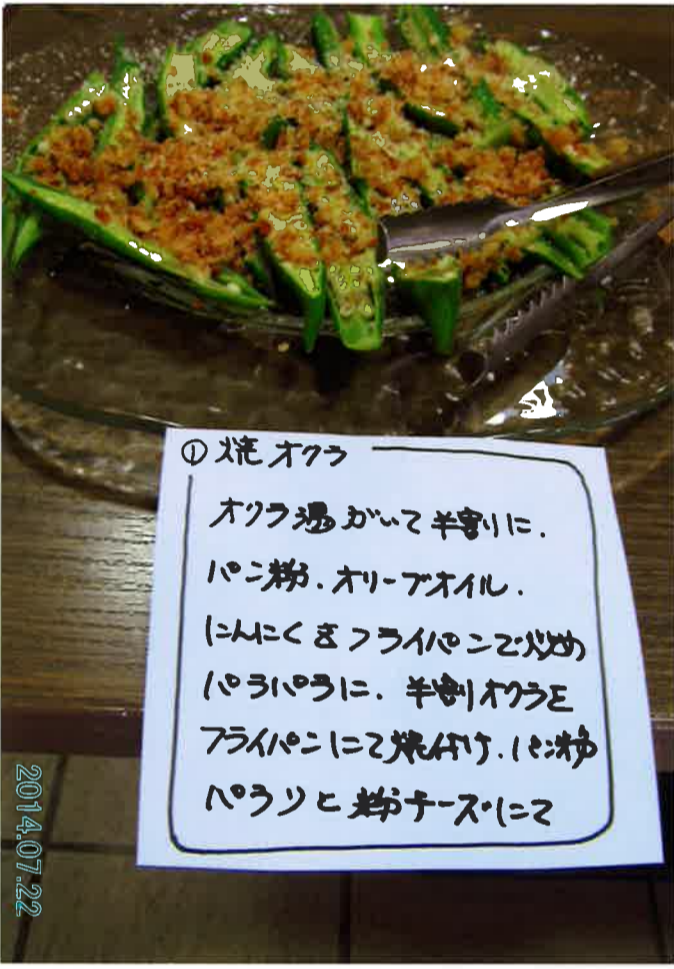 ①焼オクラ
オクラ湯がいて半割りに.
パン粉.オリーブオイル.
にんにくをフライパンで炒め
パラパラに.半割オクラを
フライパンにて焼付け.パン粉
パラリと粉チーズにて
2014.07.22